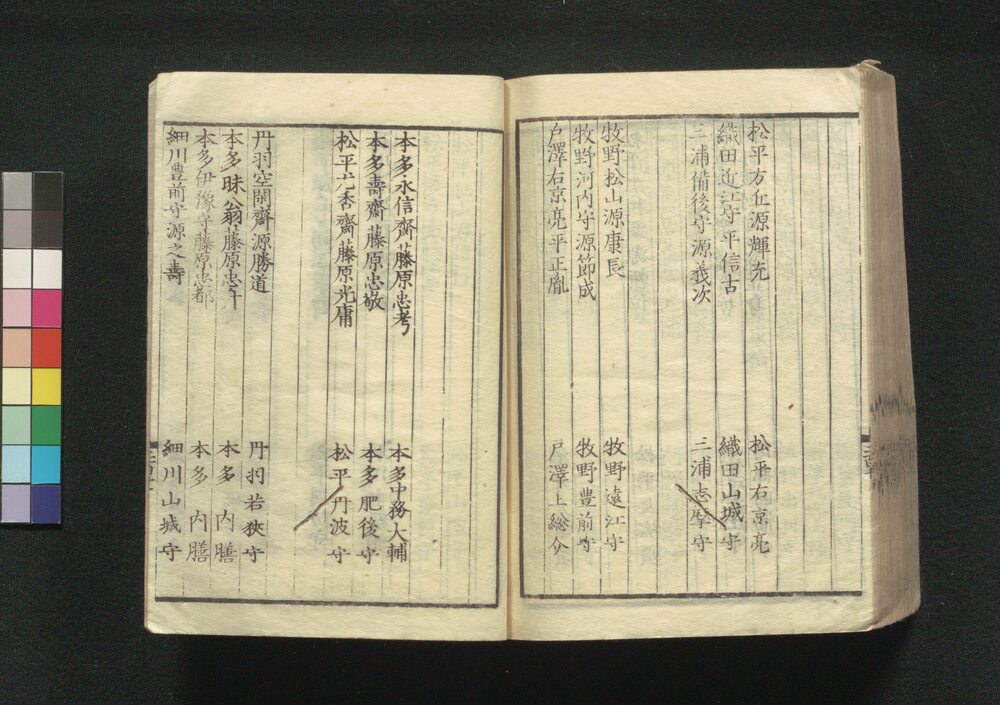 松平方丘源輝充
松平右京亮
織田近江守平信古
織田山城守
三浦備後守源義次
三浦志摩守
牧野松山源康長
牧野遠江守
牧野河内守源節成
牧野豊前守
戸澤右京亮平正胤
戸澤上総介
本多永信齋藤原忠考
本多中務大輔
本多壽齋藤原忠敬
本多肥後守
松平六香齋藤原光庸
松平丹波守
丹羽空閑齋源勝道
丹羽若狭守
本多昧翁藤原忠升
本多内膳
本多伊豫守藤原忠都
本多内膳
細川豊前守源之壽
細川山城守